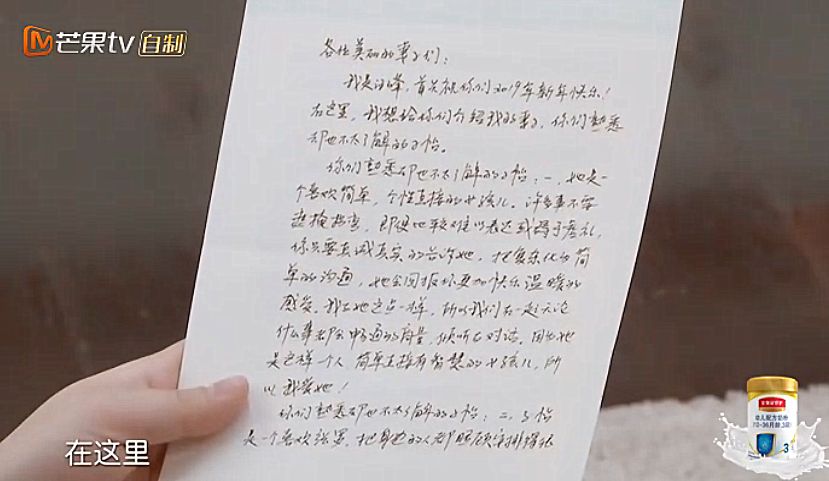 芒果tv 自制
各位美丽的妻子们:
我是汪峰,首先祝你们2019年新年快乐!
在这里,我想给你们介绍我的妻子,你们熟悉
却也不太了解的子怡。
你们熟悉却也不太了解的子怡:一,她是一
个喜欢简单,个性直接的女孩儿。许多事不要
遮掩,即便比较难以表达或碍于虚礼,
你只要真诚真实的告诉她,把复杂化为简
单的沟通,她会回报你更加快乐温暖的
感受。我与她这点一样,所以我们在一起无论
什么事都会畅通的商量,倾听与对话。因为她
是这样一个人 简单直接有智慧的女孩儿,所
以我爱她!
你们熟悉却也不太了解的子怡:二,子怡
是一个喜欢张罗,把身边的人都照顾安排得很
在这里
幼儿配方奶粉
(12-36月龄,3段)
3